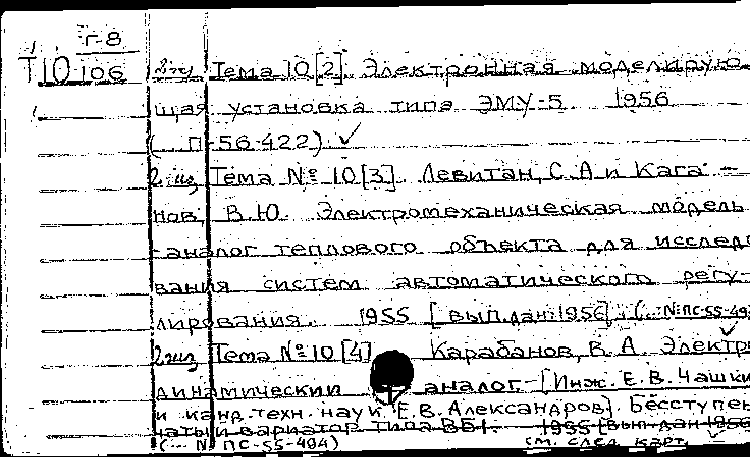 Г-8
Т10 106
2 экз Тема 10[2]. Электронная моделирую-
щая установка типа ЭМУ-5 1956
(... П-56-422). ✓
2 экз Тема № 10[3]. Левитан, С.А и Кага-
нов, В.Ю. Электромеханическая модель
-аналог теплового объекта для исследо
вания систем автоматического регу-
лирования. 1955 [вып.дан.1956]. (... №ПС-55-493
2 экз Тема № 10[4] Карабанов, В.А. Электро
динамический аналог-[Инж. Е.В. Чашки
и канд. техн. наук Е.В. Александров]. Бесступен
чатый вариатор типа ВБ1. 1955 [вып.дан.1956
(... № ПС-55-494) см. след карт.